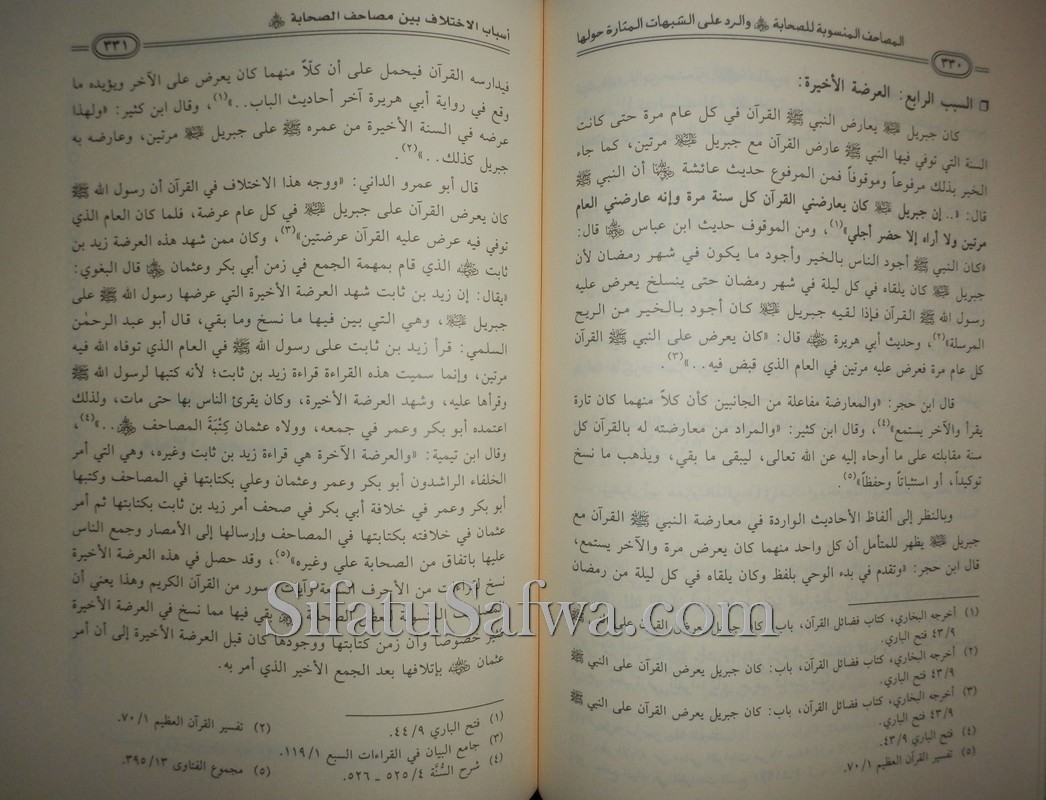 المصاحف المنسوبة للصحابة ﷺ والرد على الشبهات المثارة حولها
٣٣٠
❒ السبب الرابع: العرضة الأخيرة:
كان جبريل يعارض النبي ﷺ القرآن في كل عام مرة حتى كانت
السنة التي توفي فيها النبي ﷺ عارض القرآن مع جبريل مرتين، كما جاء
الخبر بذلك مرفوعاً وموقوفاً فمن المرفوع حديث عائشة أن النبي ﷺ
قال: «.. إن جبريل كان يعارضني القرآن كل سنة مرة وإنه عارضني العام
مرتين ولا أراه إلا حضر أجلي»(١)، ومن الموقوف حديث ابن عباس قال:
«كان النبي ﷺ أجود الناس بالخير وأجود ما يكون في شهر رمضان لأن
جبريل كان يلقاه في كل ليلة في شهر رمضان حتى ينسلخ يعرض عليه
رسول الله ﷺ القرآن فإذا لقيه جبريل كان أجود بالخير من الريح
المرسلة»(٢)، وحديث أبي هريرة قال: «كان يعرض على النبي ﷺ القرآن
كل عام مرة فعرض عليه مرتين في العام الذي قبض فيه..»(٣).
قال ابن حجر: «والمعارضة مفاعلة من الجانبين كأن كلاً منهما كان تارة
يقرأ والآخر يستمع»(٤)، وقال ابن كثير: «والمراد من معارضته له بالقرآن كل
سنة مقابلته على ما أوحاه إليه عن الله تعالى، ليبقى ما بقي، ويذهب ما نسخ
توكيداً، أو استثباتاً وحفظاً»(٥).
وبالنظر إلى ألفاظ الأحاديث الواردة في معارضة النبي ﷺ القرآن مع
جبريل يظهر للمتأمل أن كل واحد منهما كان يعرض مرة والآخر يستمع،
قال ابن حجر: «وتقدم في بدء الوحي بلفظ وكان يلقاه في كل ليلة من رمضان
(١) أخرجه البخاري، كتاب فضائل القرآن، باب: كان جبريل يعرض القرآن على النبي ﷺ
٤٣/٩ فتح الباري.
(٢) أخرجه البخاري، كتاب فضائل القرآن، باب: كان جبريل يعرض القرآن على النبي ﷺ
٤٣/٩ فتح الباري.
(٣) أخرجه البخاري، كتاب فضائل القرآن، باب: كان جبريل يعرض القرآن على النبي ﷺ
٤٣/٩ فتح الباري.
(٤) فتح الباري ٤٣/٩.
(٥) تفسير القرآن العظيم ٧٠/١.
أسباب الاختلاف بين مصاحف الصحابة
٣٣١
فيدارسه القرآن فيحمل على أن كلاً منهما كان يعرض على الآخر ويؤيده ما
وقع في رواية أبي هريرة آخر أحاديث الباب..»(١)، وقال ابن كثير: «ولهذا
عرضه في السنة الأخيرة من عمره ﷺ على جبريل مرتين، وعارضه به
جبريل كذلك..»(٢).
قال أبو عمرو الداني: «ووجه هذا الاختلاف في القرآن أن رسول الله ﷺ
كان يعرض القرآن على جبريل في كل عام عرضة، فلما كان العام الذي
توفي فيه عرض عليه القرآن عرضتين»(٣)، وكان ممن شهد هذه العرضة زيد بن
ثابت الذي قام بمهمة الجمع في زمن أبي بكر وعثمان قال البغوي:
«يقال: إن زيد بن ثابت شهد العرضة الأخيرة التي عرضها رسول الله ﷺ على
جبريل، وهي التي بين فيها ما نسخ وما بقي، قال أبو عبد الرحمٰن
السلمي: قرأ زيد بن ثابت على رسول الله ﷺ في العام الذي توفاه الله فيه
مرتين، وإنما سميت هذه القراءة قراءة زيد بن ثابت؛ لأنه كتبها لرسول الله ﷺ
وقرأها عليه، وشهد العرضة الأخيرة، وكان يقرئ الناس بها حتى مات، ولذلك
اعتمده أبو بكر وعمر في جمعه، وولاه عثمان كِتْبَةَ المصاحف..»(٤)،
وقال ابن تيمية: «والعرضة الآخرة هي قراءة زيد بن ثابت وغيره، وهي التي أمر
الخلفاء الراشدون أبو بكر وعمر وعثمان وعلي بكتابتها في المصاحف وكتبها
أبو بكر وعمر في خلافة أبي بكر في صحف أمر زيد بن ثابت بكتابتها ثم أمر
عثمان في خلافته بكتابتها في المصاحف وإرسالها إلى الأمصار وجمع الناس
عليها باتفاق من الصحابة علي وغيره»(٥)، وقد حصل في هذه العرضة الأخيرة
نسخ لقراءات من الأحرف السبعة وآيات وسور من القرآن الكريم وهذا يعني أن
المصاحف المنسوبة لبعض الصحابة بقي فيها مما نسخ في العرضة الأخيرة
خصوصاً وأن زمن كتابتها ووجودها كان قبل العرضة الأخيرة إلى أن أمر
عثمان بإتلافها بعد الجمع الأخير الذي أمر به.
(١) فتح الباري ٤٤/٩. (٢) تفسير القرآن العظيم ٧٠/١.
(٣) جامع البيان في القراءات السبع ١١٩/١.
(٤) شرح السُّنَّة ٥٢٥/٤ - ٥٢٦. (٥) مجموع الفتاوى ٣٩٥/١٣.
SifatuSafwa.com